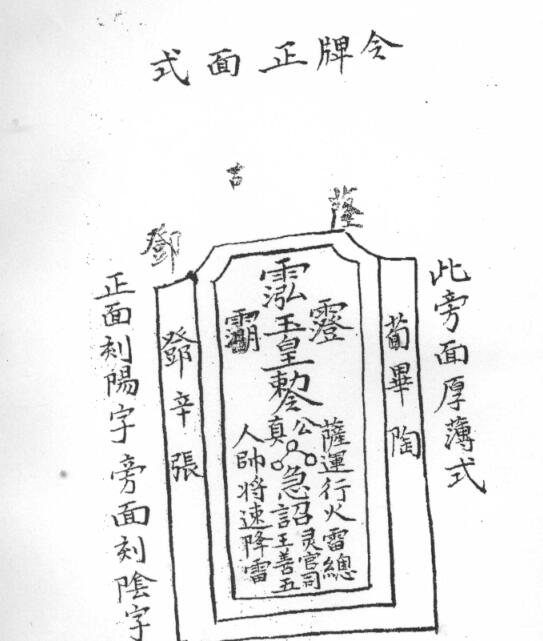 令牌正面式
吉
薩
鄧
此旁面厚薄式
苟畢陶
玉皇勅令
薩公真人
運行火雷總司
急詔
灵官王善
五雷帥將速降
鄧辛張
正面刻陽字旁面刻陰字